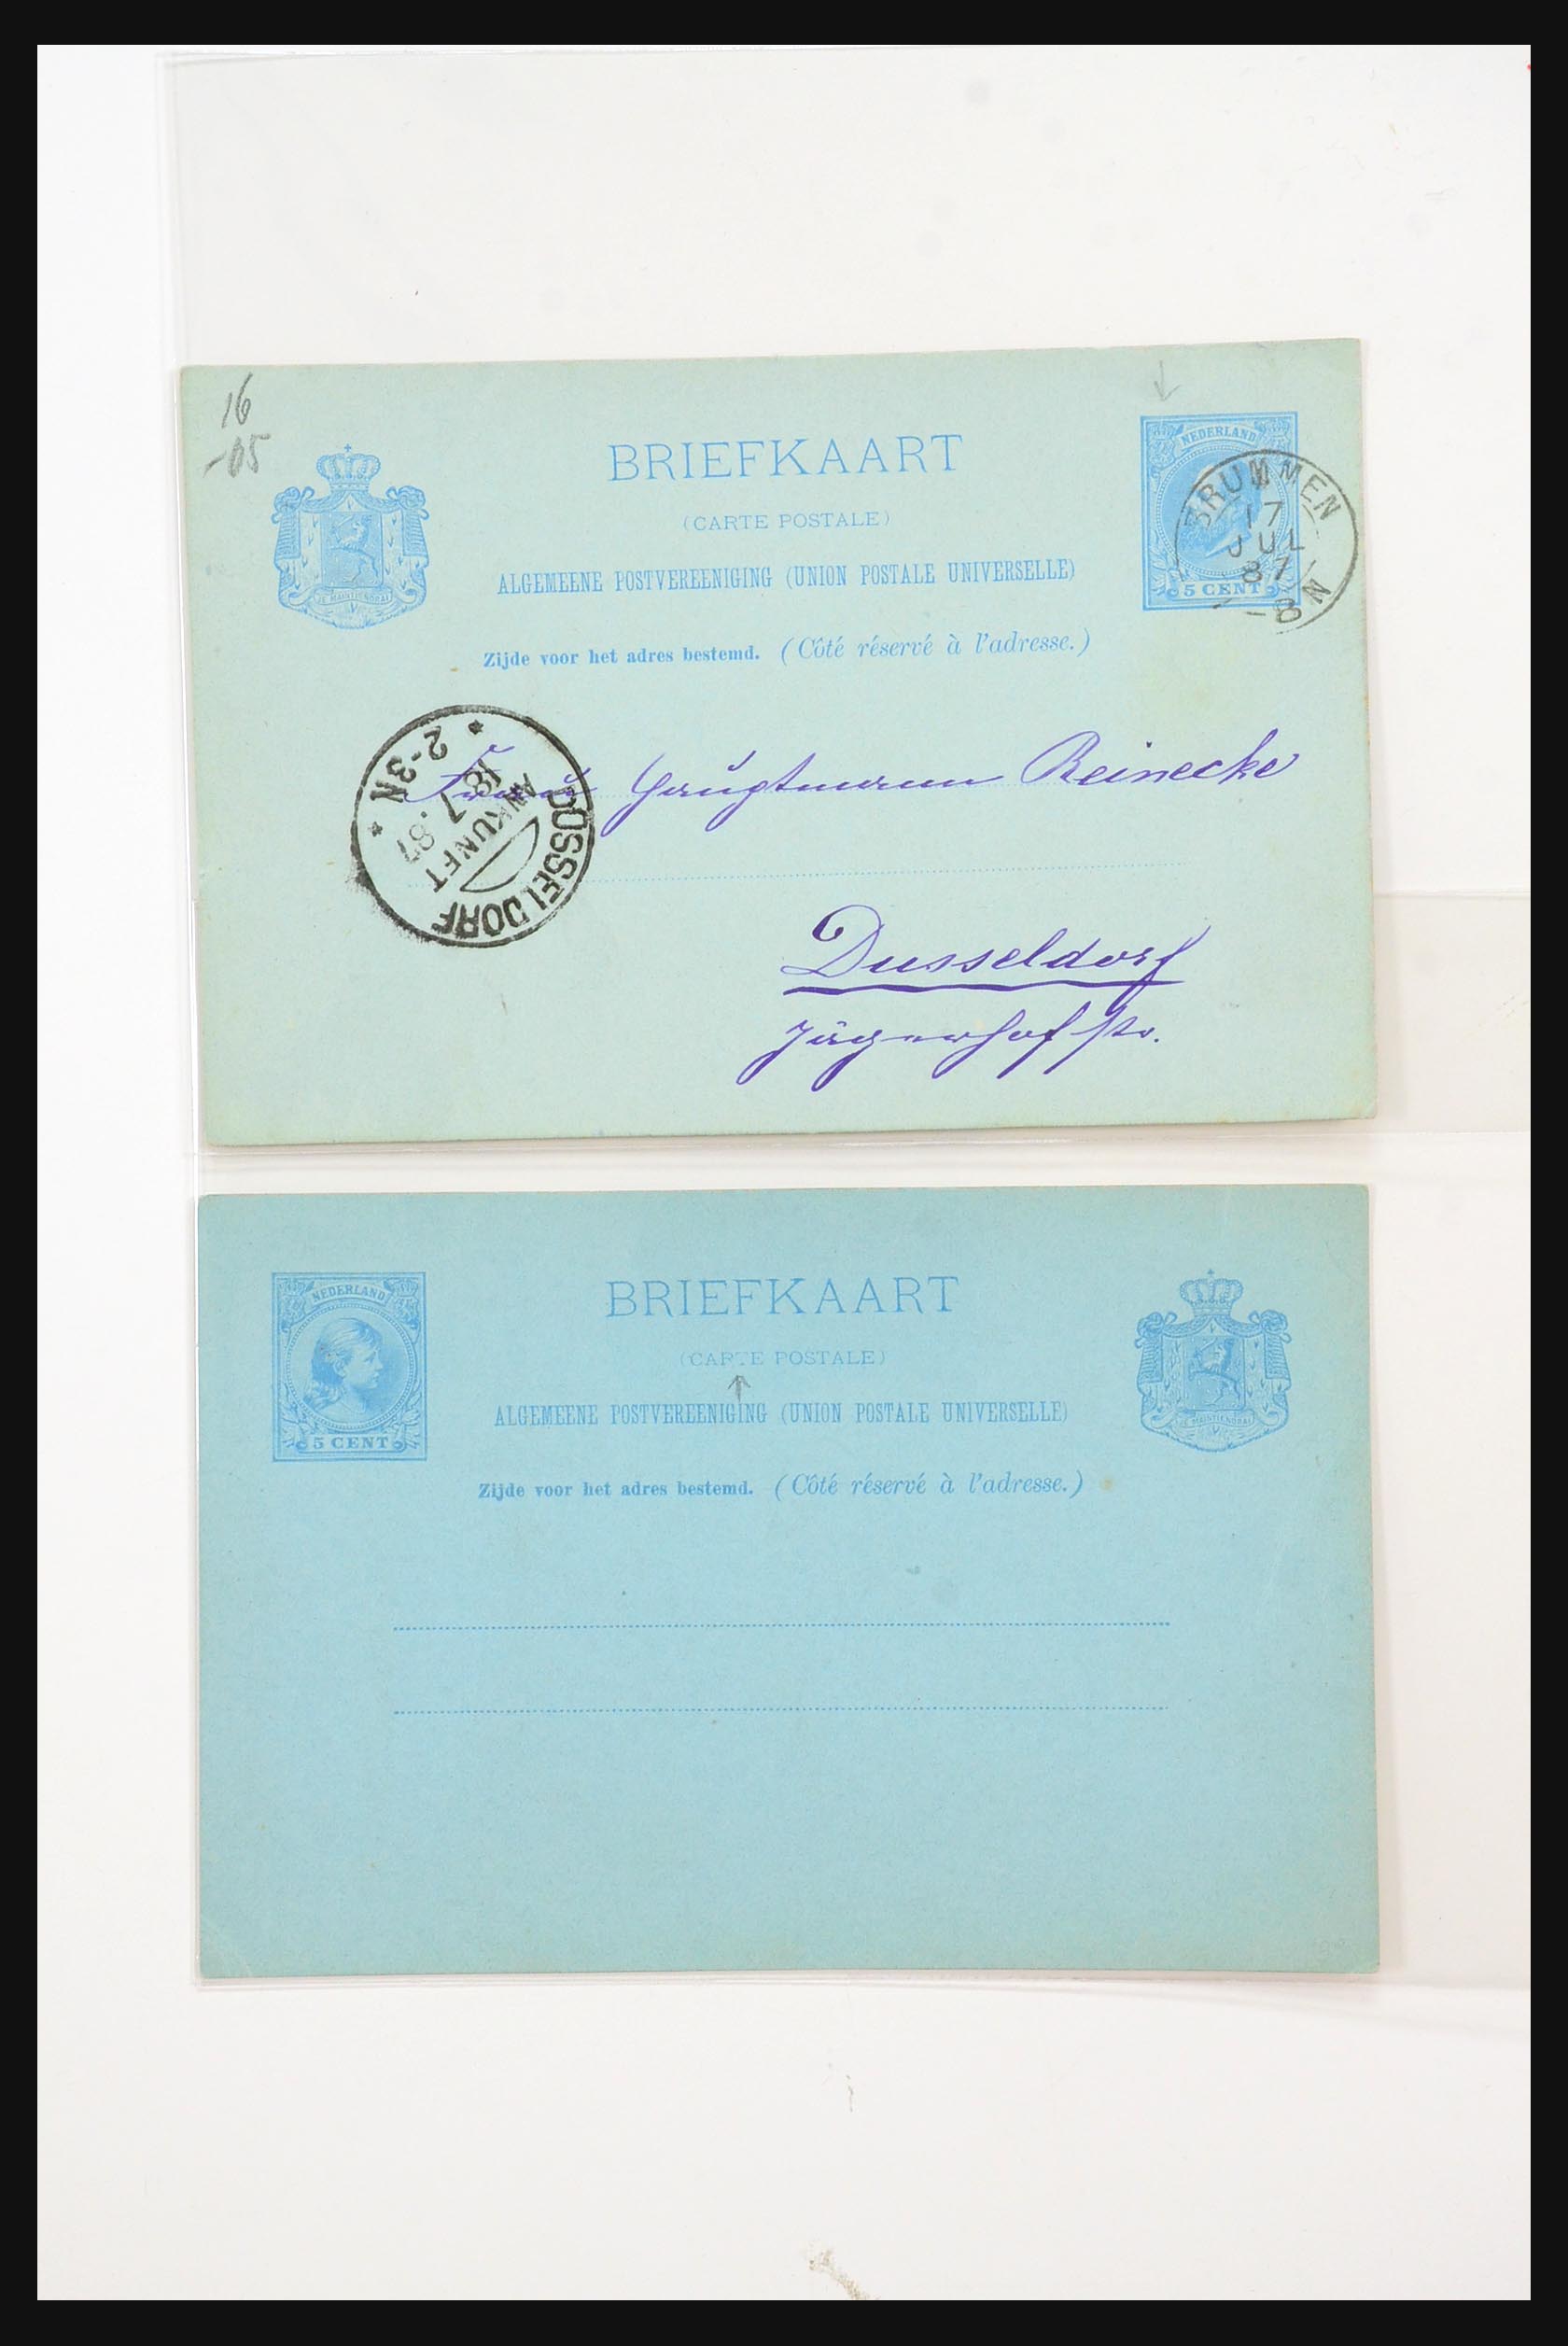 16
-05
BRIEFKAART
(CARTE POSTALE)
ALGEMEENE POSTVEREENIGING (UNION POSTALE UNIVERSELLE)
Zijde voor het adres bestemd. (Côté réservé à l'adresse.)
NEDERLAND
5 CENT
JE MAINTIENDRAI
BRUMMEN
17
JUL
87
7-8N
DÜSSELDORF
ANKUNFT
18.7.87
* 2-3N *
Frau Hauptmann Reinecke
Dusseldorf
Jägerhofstr.
NEDERLAND
5 CENT
BRIEFKAART
(CARTE POSTALE)
ALGEMEENE POSTVEREENIGING (UNION POSTALE UNIVERSELLE)
Zijde voor het adres bestemd. (Côté réservé à l'adresse.)
JE MAINTIENDRAI